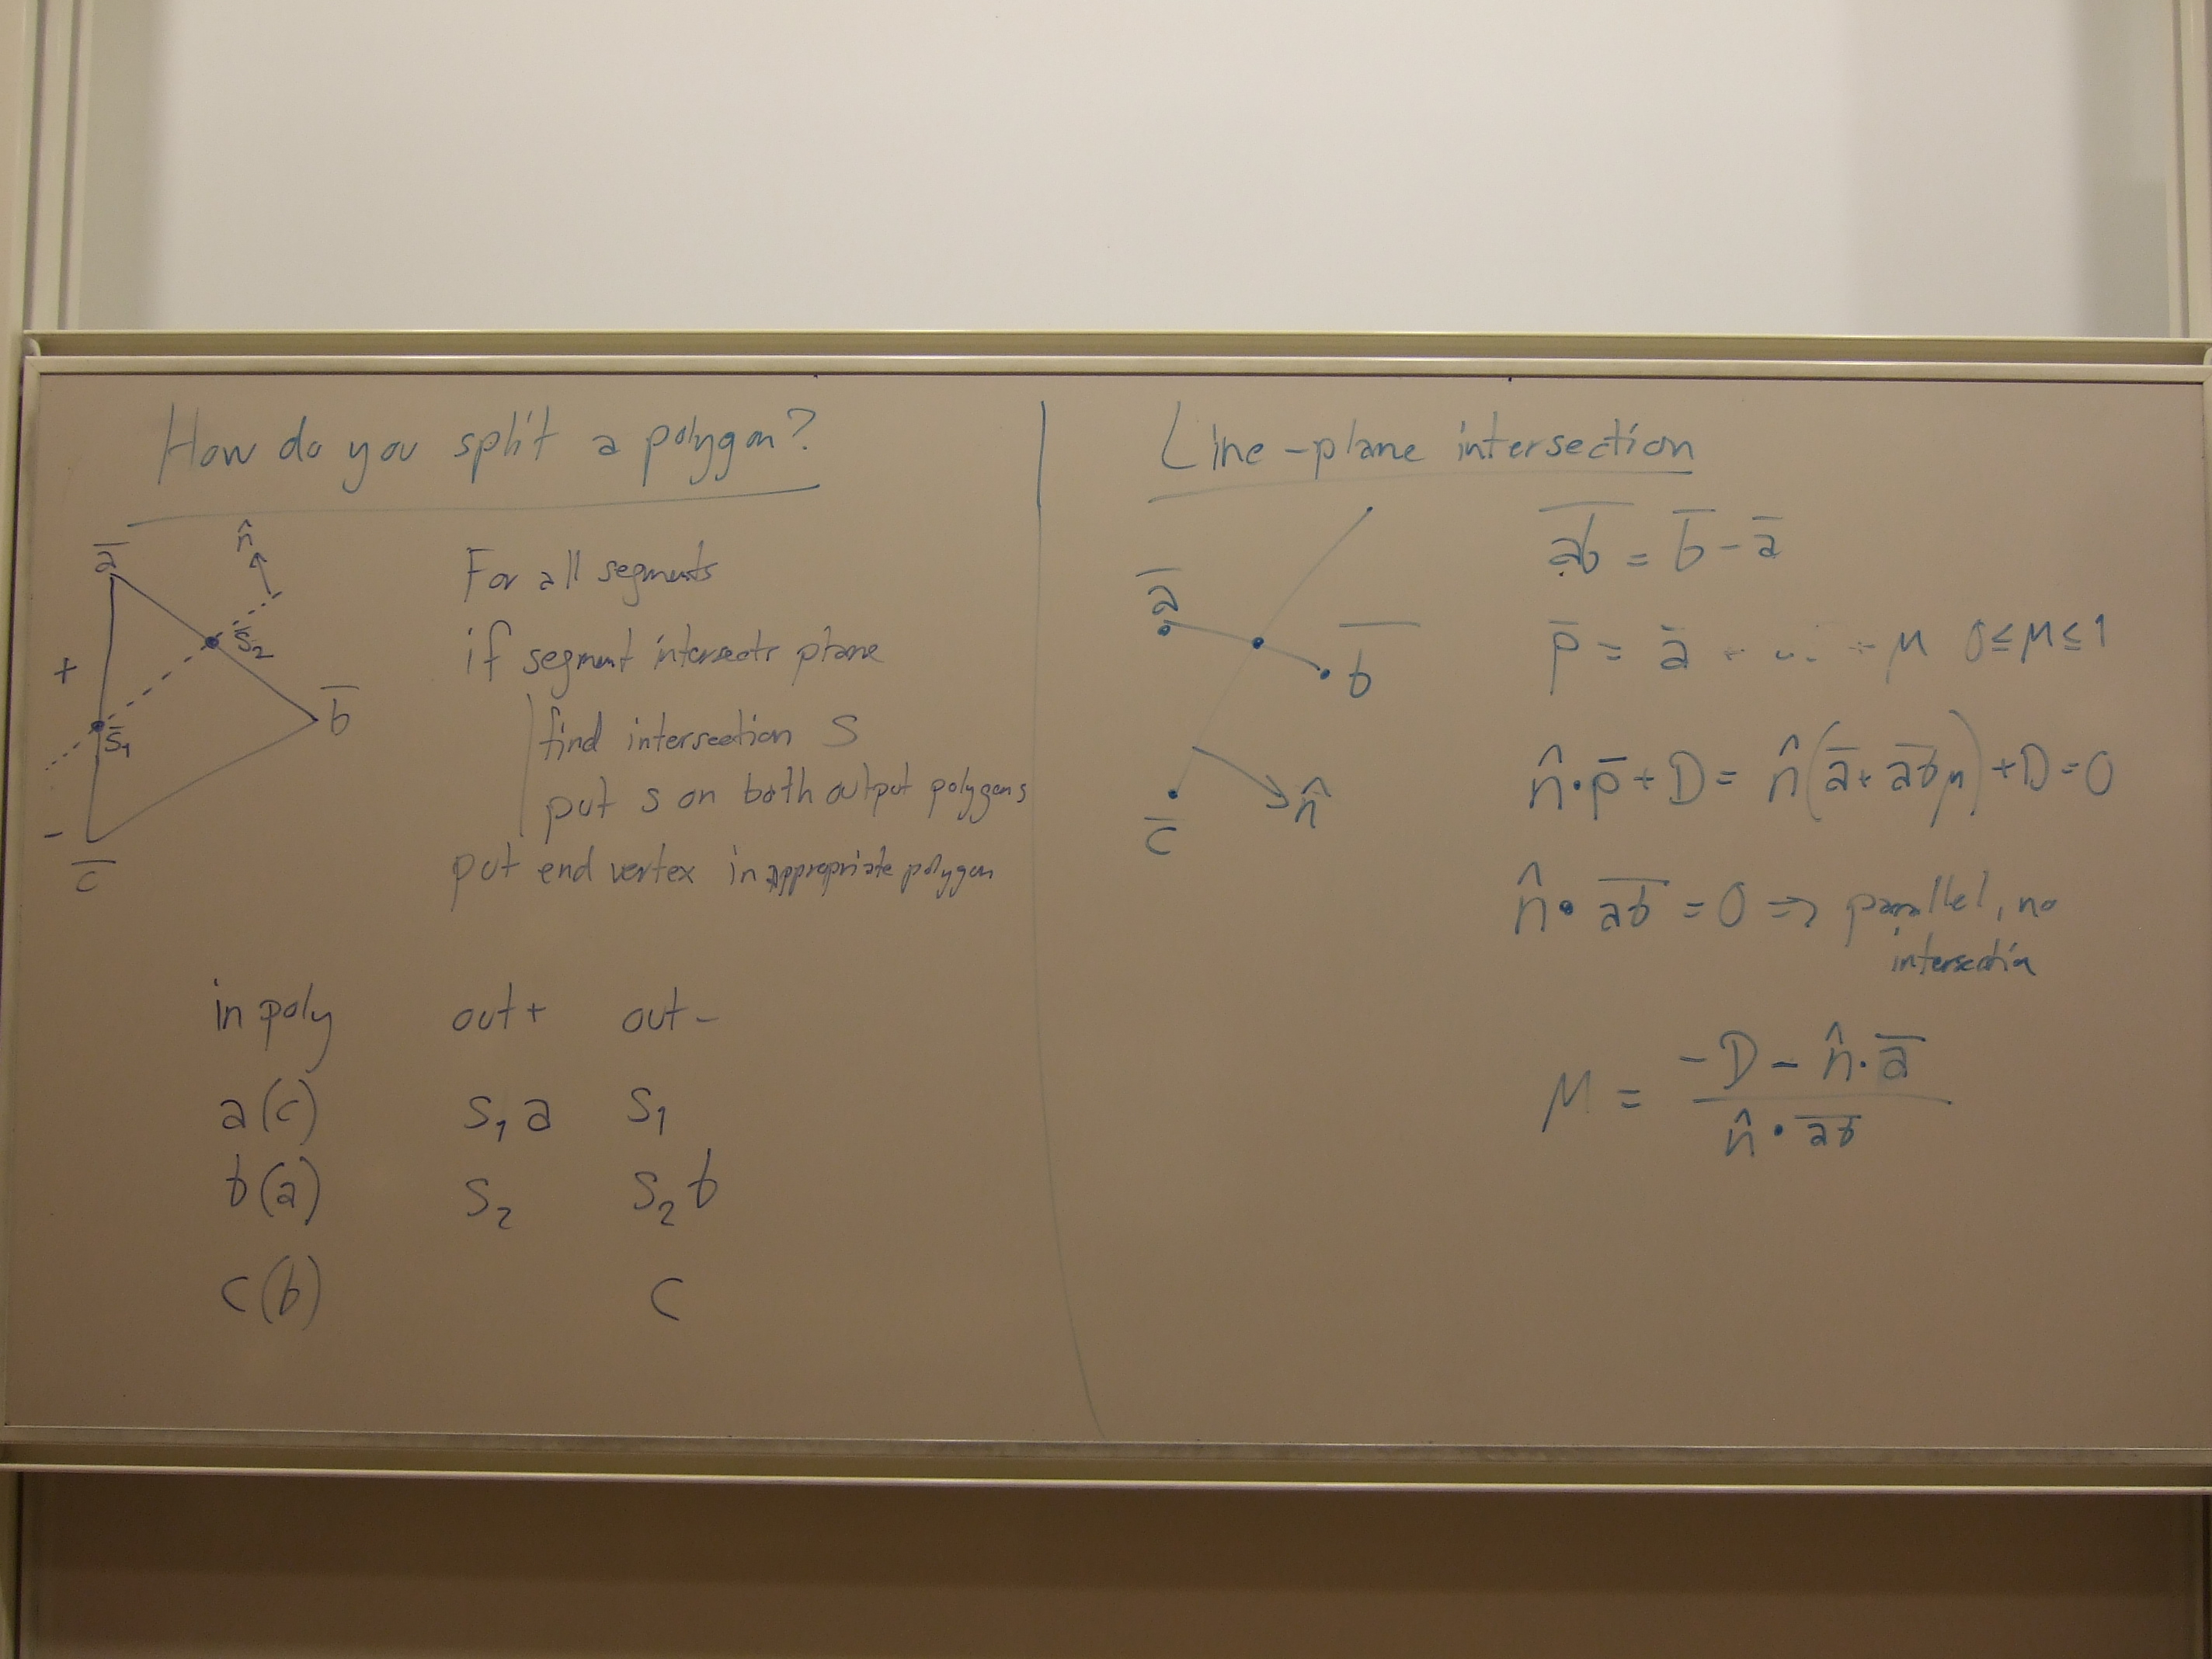 How do you split a polygon?
a̅
n̂
s̅₂
+
b̅
s̅₁
-
c̅
For all segments
if segment intersects plane
find intersection S
put s on both output polygons
put end vertex in appropriate polygon
in poly out+ out-
a(c) S₁ a S₁
b(a) S₂ S₂ b
c(b) c
Line-plane intersection
a̅
b̅
n̂
c̅
a̅b̅ = b̅ - a̅
p̅ = a̅ μ 0≤μ≤1
n̂·p̅+D = n̂(a̅+a̅b̅μ)+D=0
n̂·a̅b̅ = 0 => parallel, no
intersection
μ = (-D - n̂·a̅) / (n̂·a̅b̅)